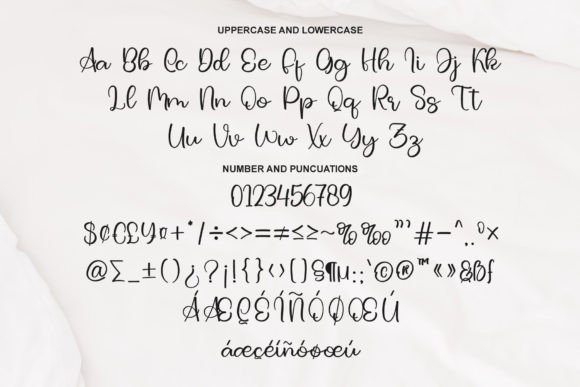 UPPERCASE AND LOWERCASE
Aa Bb Cc Dd Ee Ff Gg Hh Ii Jj Kk
Ll Mm Nn Oo Pp Qq Rr Ss Tt
Uu Vv Ww Xx Yy Zz
NUMBER AND PUNCUATIONS
0123456789
$¢£¥¤+*/÷<>=≠≤≥~%‰”’#-^.,º×
@∑_±()¿?¡!{}‹›[]§¶µ:;‘©®™«»&ßƒ
ÁÆÇÉÍÑÓØŒÚ
áæçéíñóøœú